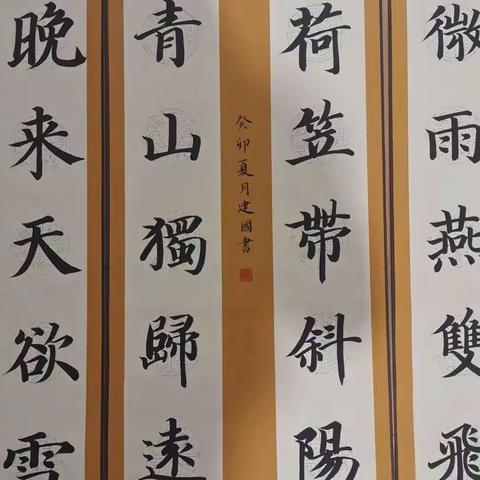 微雨燕雙飛
荷笠帶斜陽
癸卯夏月建國書
青山獨歸遠
晚来天欲雪